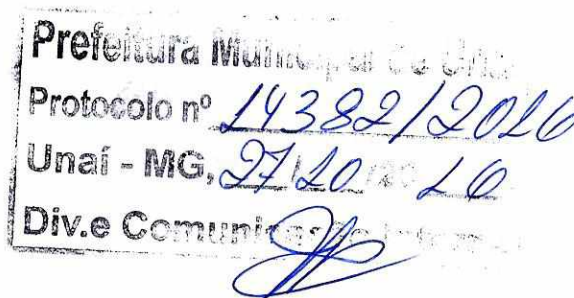 Prefeitura Municipal de Unaí
Protocolo nº 14382/2016
Unaí - MG, 27/10/2016
Div.e Comunicação